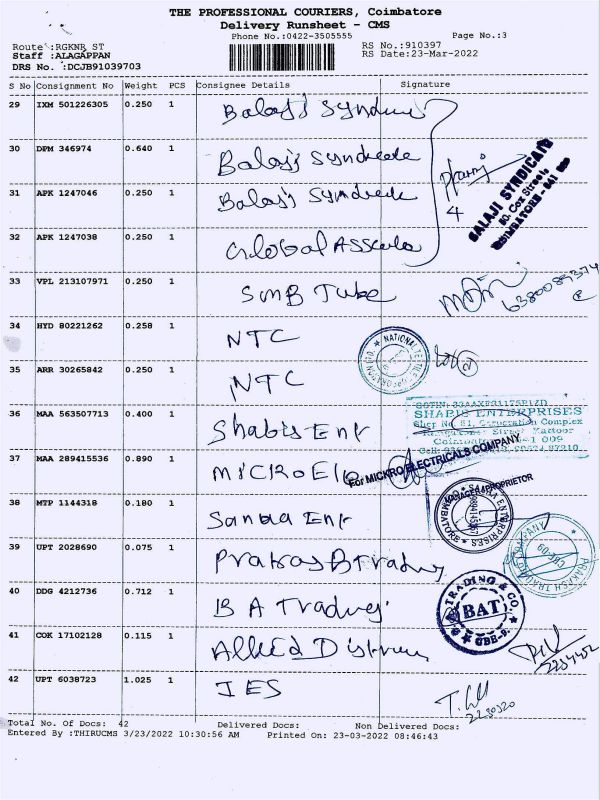 THE PROFESSIONAL COURIERS, Coimbatore
Delivery Runsheet - CMS
Phone No.:0422-3505555 Page No.:3
Route :RGKNR ST RS No.:910397
Staff :ALAGAPPAN RS Date:23-Mar-2022
DRS No. :DCJB91039703
S No Consignment No Weight PCS Consignee Details Signature
29 IXM 501226305 0.250 1 Balaji Syndicate
30 DPM 346974 0.640 1 Balaji Syndicate
31 APK 1247046 0.250 1 Balaji Syndicate
4
BALAJI SYNDICATE
50, Cox Street,
COIMBATORE - 641
32 APK 1247038 0.250 1 Global
33 VPL 213107971 0.250 1 SMB Tube
6380089374
34 HYD 80221262 0.258 1 NTC
35 ARR 30265842 0.250 1 NTC
36 MAA 563507713 0.400 1 Shabis Ent
SHABIS ENTERPRISES
Corporation Complex
Street Kattoor
37 MAA 289415536 0.890 1 MICRO Ele
For MICKRO ELECTRICALS COMPANY
MANAGER/PROPRIETOR
38 MTP 1144318 0.180 1 Ent
ENTERPRISES
39 UPT 2028690 0.075 1 Prakash Trading
PRAKASH TRADING COMPANY
CBE-09
40 DDG 4212736 0.712 1 B A Trading
TRADING & CO.
BAT
CBE-9.
41 COK 17102128 0.115 1 Allied
42 UPT 6038723 1.025 1 IES
2230320
Total No. Of Docs: 42 Delivered Docs: Non Delivered Docs:
Entered By :THIRUCMS 3/23/2022 10:30:56 AM Printed On: 23-03-2022 08:46:43